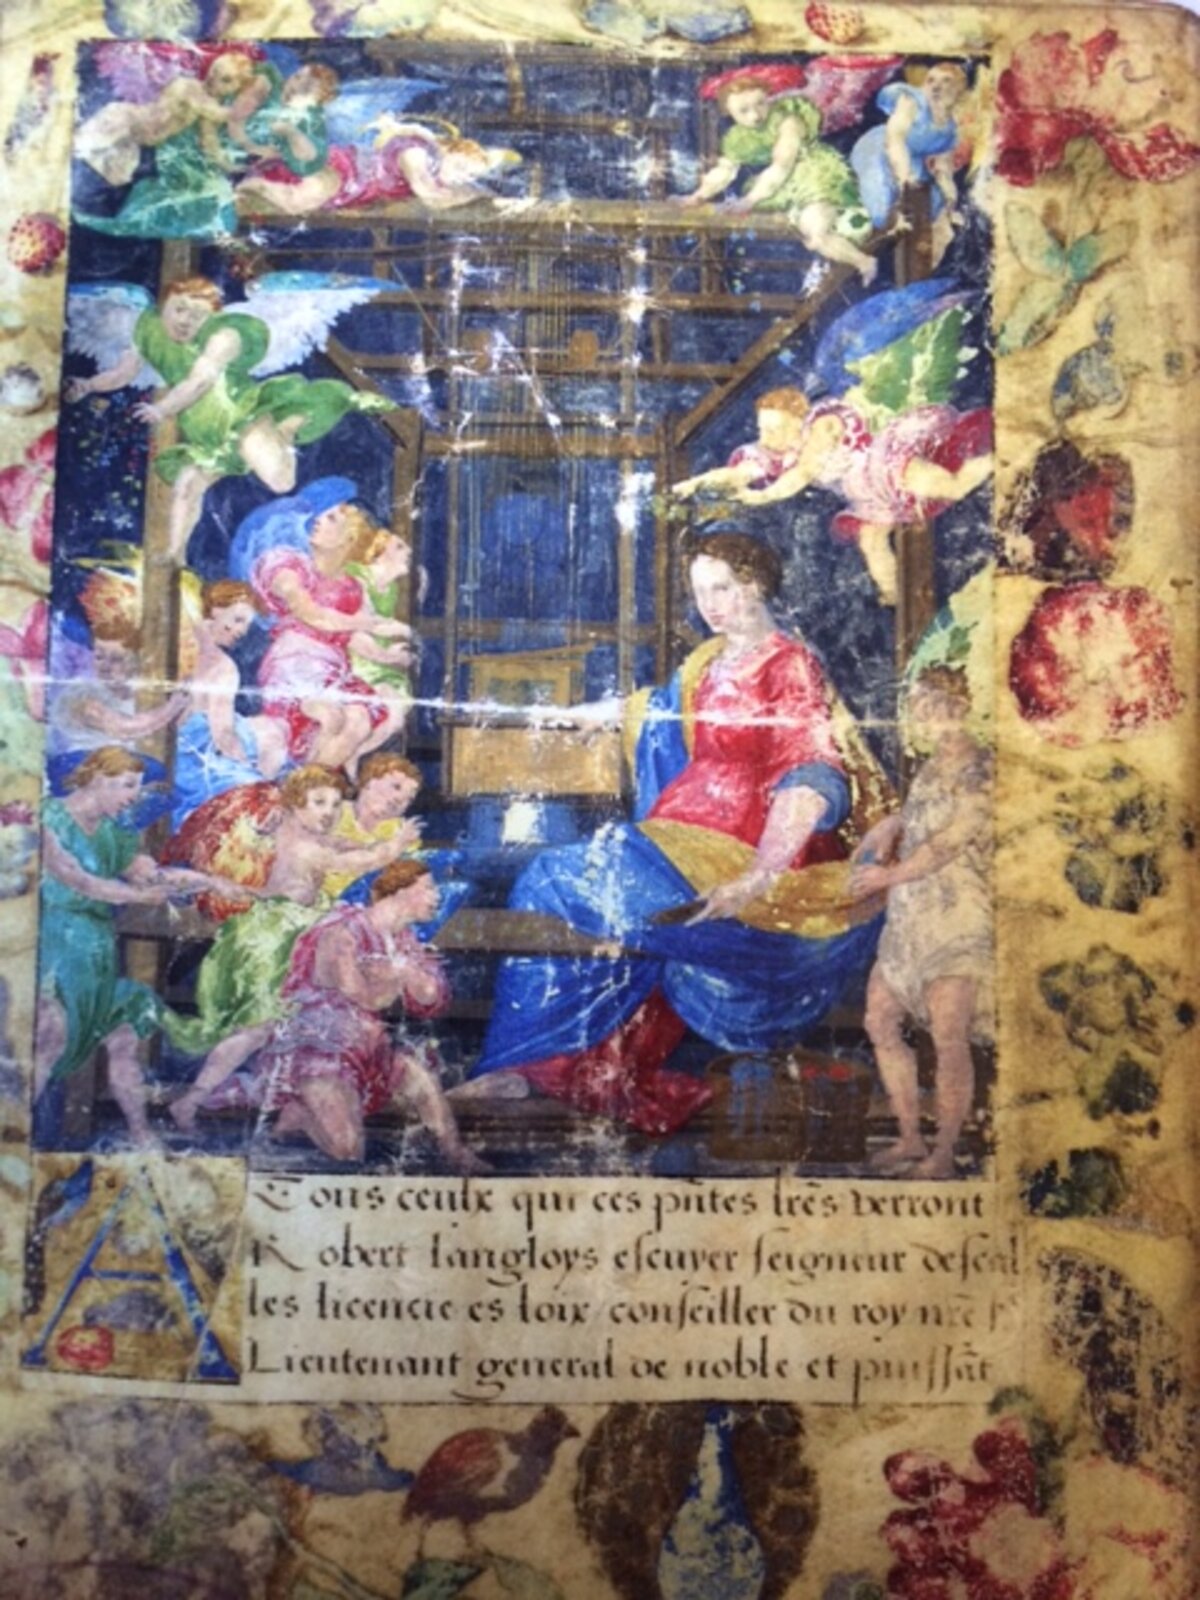 A Tous ceulx qui ces pñtes lrēs verront
Robert langloys escuyer seigneur
les licencie es loix conseiller du roy nrē
Lieutenant general de noble et puissāt